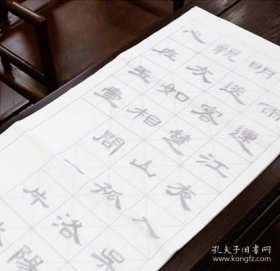 雨連江夜入吳
明送客楚山孤洛陽
親友如相問一片
心在玉壺
孔夫子旧书网